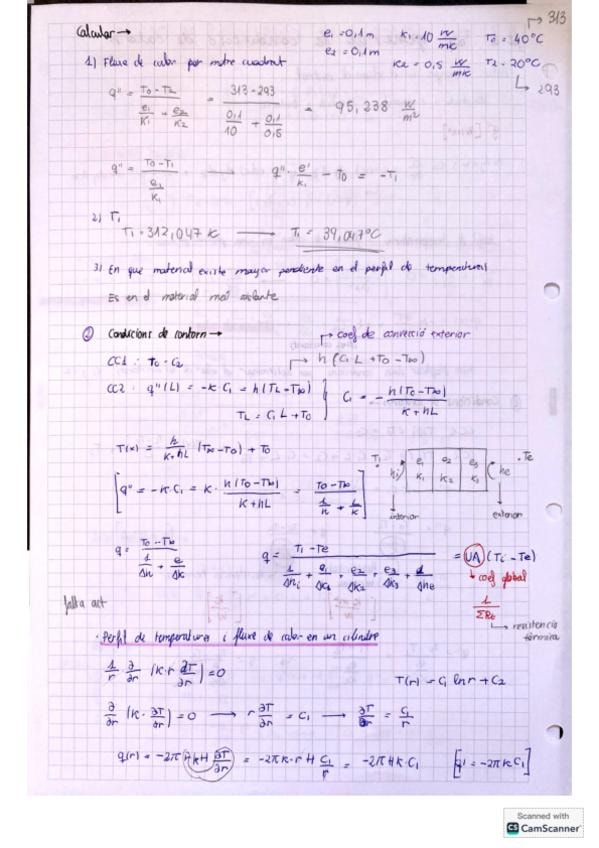 Calcular →
e₁ = 0,1 m   K₁ = 10 W/mK   T₀ = 40°C → 313
e₂ = 0,1 m   K₂ = 0,5 W/mK   T₂ = 20°C → 293
1) Fluxe de calor per metre cuadrat
q'' = (T₀ - T₂) / (e₁/K₁ + e₂/K₂) = (313 - 293) / (0,1/10 + 0,1/0,5) = 95,238 W/m²
q'' = (T₀ - T₁) / (e₁/K₁) → q'' · e'/K₁ - T₀ = -T₁
2) T₁
T₁ = 312,047 K → T₁ = 39,047°C
3) En que material existe mayor pendiente en el perfil de temperaturas
Es en el material más aislante
② Condicions de contorn →
→ coef de convecció exterior
CC1: T₀ = C₂
→ h (C₁ L + T₀ - T∞)
CC2: q''(L) = -K C₁ = h (T_L - T∞)
T_L = C₁ L + T₀
C₁ = - h (T₀ - T∞) / (K + hL)
T(x) = h / (K + hL) (T∞ - T₀) + T₀
[q'' = -K C₁ = K · h (T₀ - T∞) / (K + hL) = (T₀ - T∞) / (1/h + L/K)]
Ti   e₁   e₂   e₃   · Te
hi   K₁   K₂   K₃   he
interior   exterior
q = (T₀ - T∞) / (1/Ah + e/AK)
q = (Ti - Te) / (1/Ahi + e₁/AK₁ + e₂/AK₂ + e₃/AK₃ + 1/Ahe) = UA (Ti - Te)
↳ coef global
1/ΣRt
↳ resistencia térmica
falta act
· Perfil de temperatura i fluxe de calor en un cilindre
1/r ∂/∂r (K·r ∂T/∂r) = 0
T(r) = C₁ ln r + C₂
∂/∂r (K · ∂T/∂r) = 0 → r ∂T/∂r = C₁ → ∂T/∂r = C₁/r
q(r) = -2π r k H ∂T/∂r = -2π K · r H C₁/r = -2π H K · C₁   [q' = -2π K C₁]
Scanned with
CS CamScanner